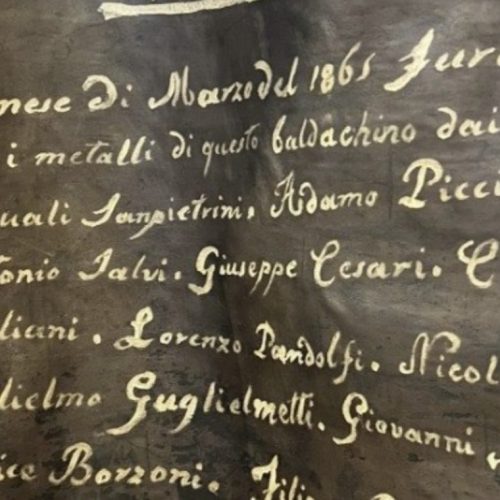 mese di Marzo del 1865 Furo
i metalli di questo baldachino dai
quali Sanpietrini. Adamo Picci
tonio Salvi. Giuseppe Cesari. C
liani. Lorenzo Pandolfi. Nicol
lielmo Guglielmetti. Giovanni
ice Borzoni. Filip